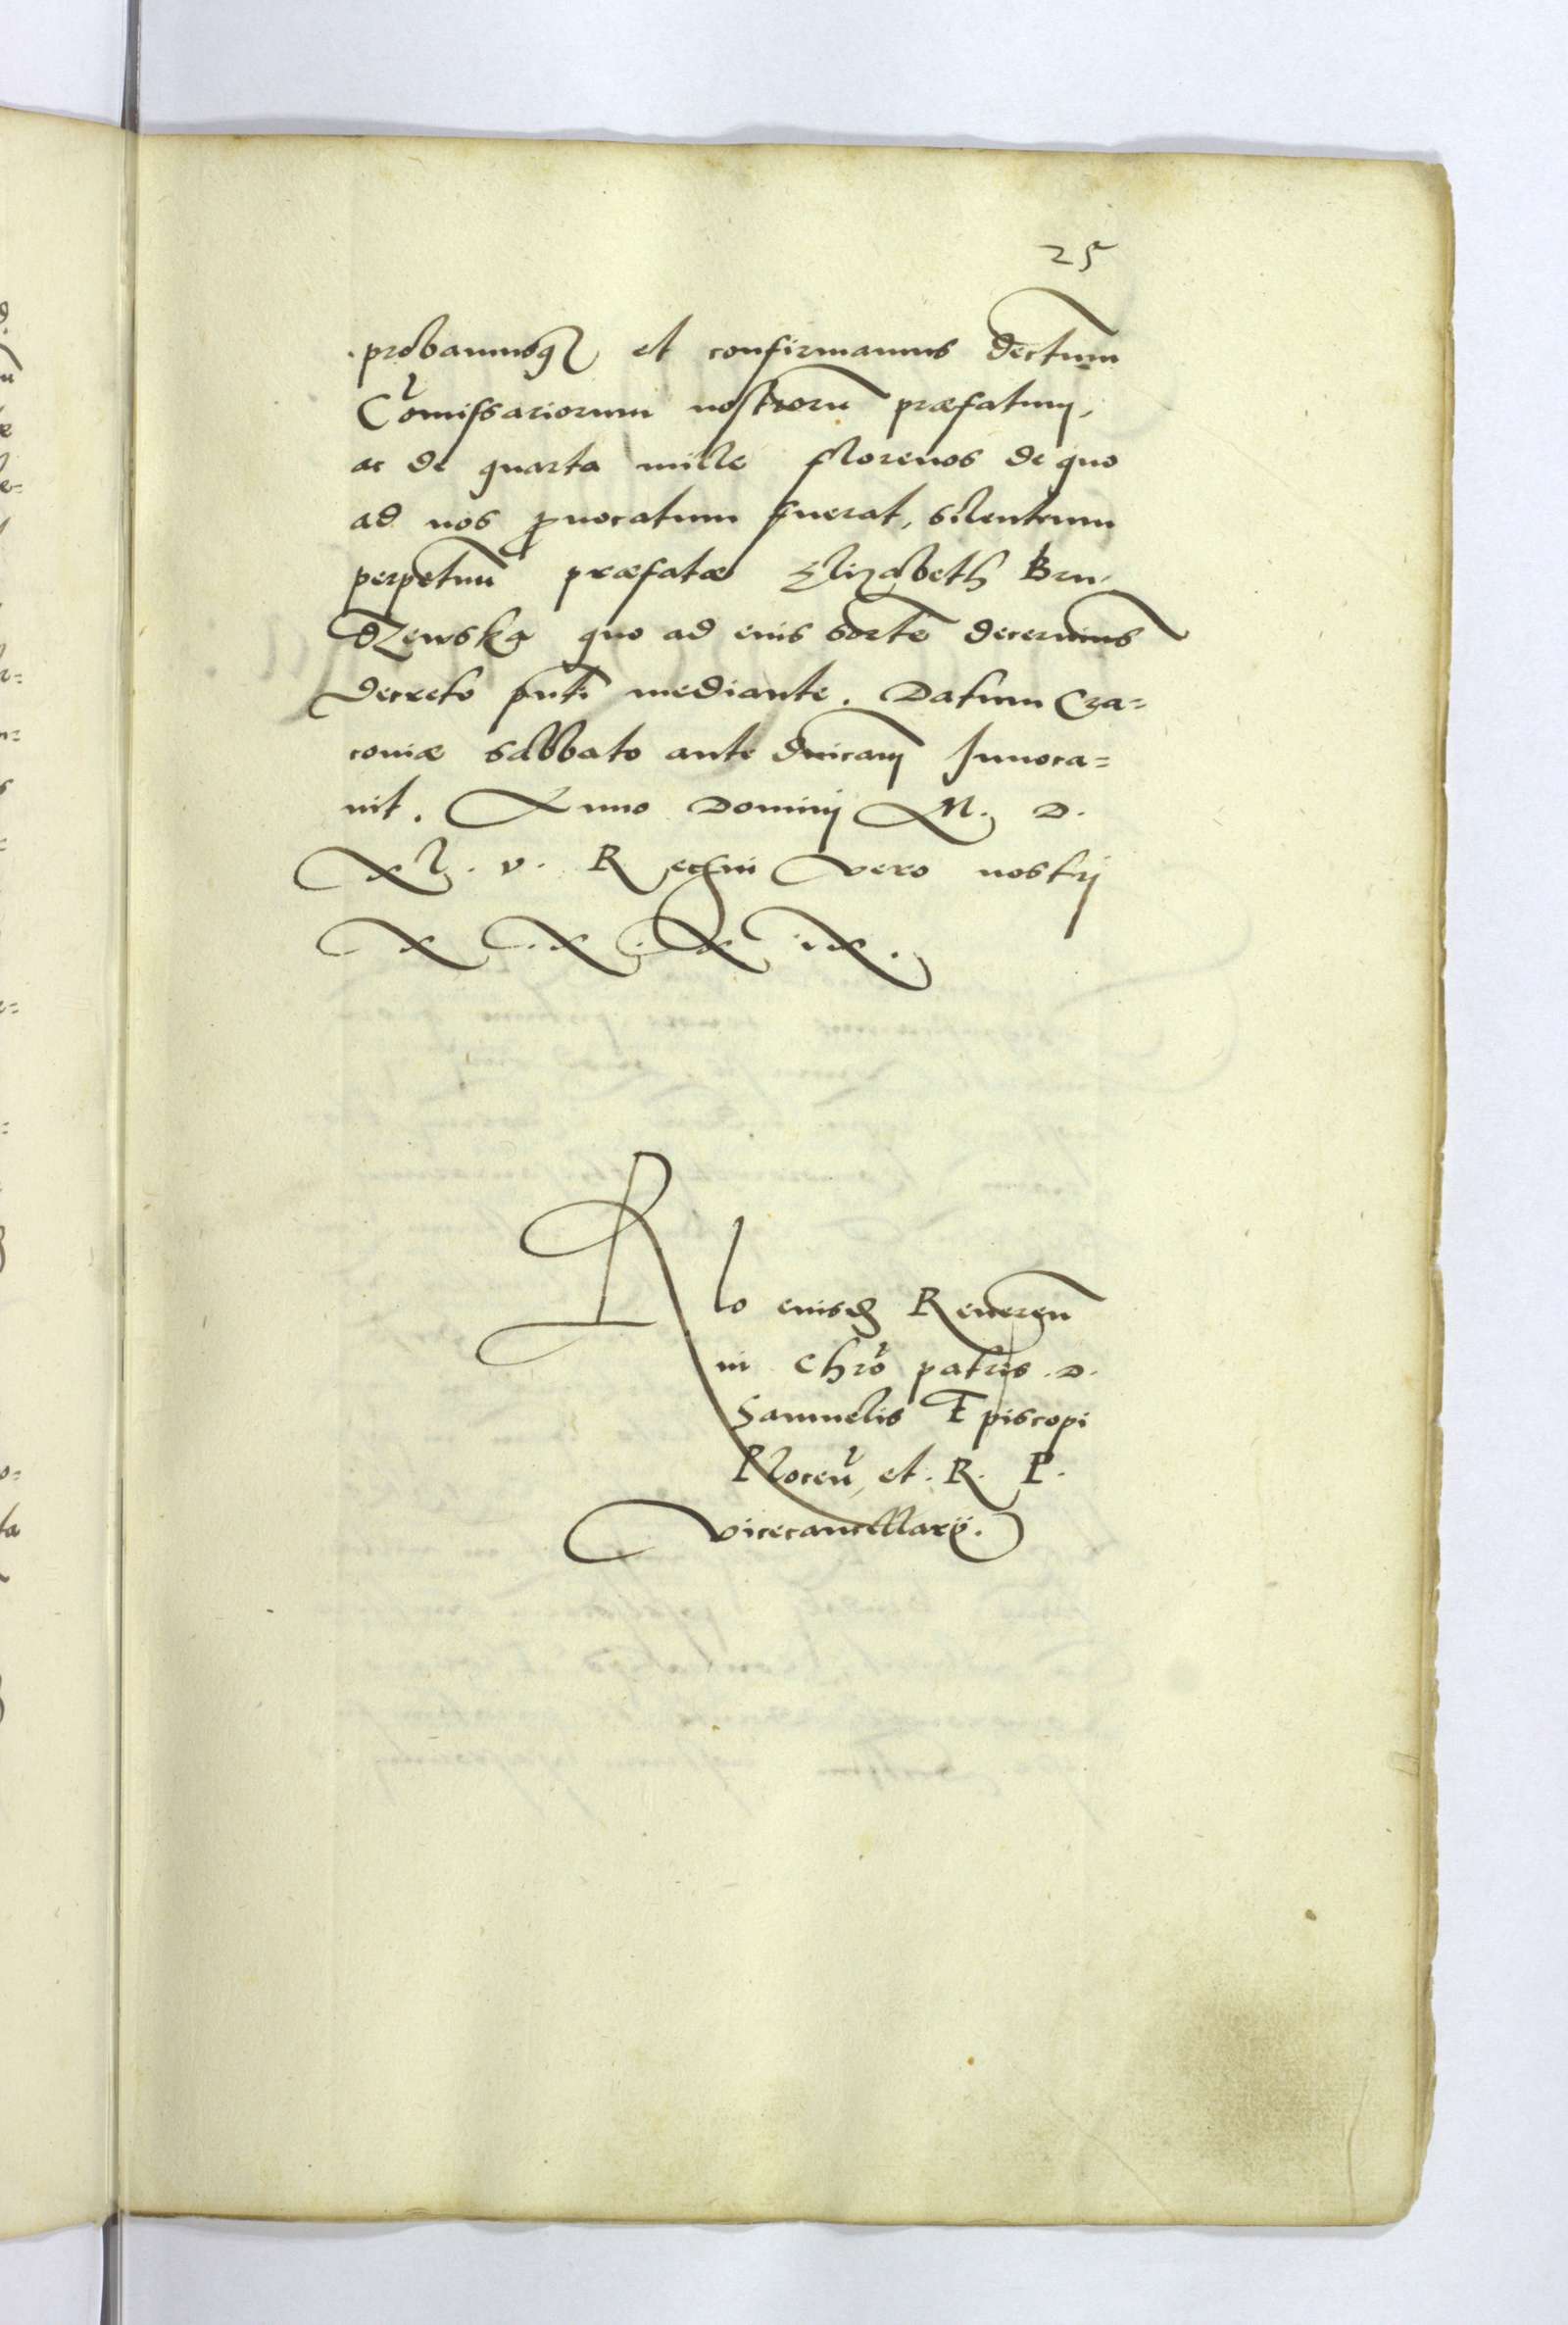 25
probamusq₃ et confirmamus dectum
Comissariorum nostrorū præfatum,
ac de quarta mille florenos de quo
ad nos ꝓuocatum fuerat, silentium
perpetuū præfatæ Elizabeth Bru,
dzewska quo ad eius sortē decernimus
decreto pn̄ti mediante. Datum Cra=
couiæ sabbato ante dnicam Inuoca=
uit. Anno Dominij M. D.
Xl. v. Regni vero nostrj
X. X. X ix.
Rlo eiusd Reueren
in Chrō patris .D.
Samuelis Episcopi
Ploceñ, et. R. P.
vicecancellarij.